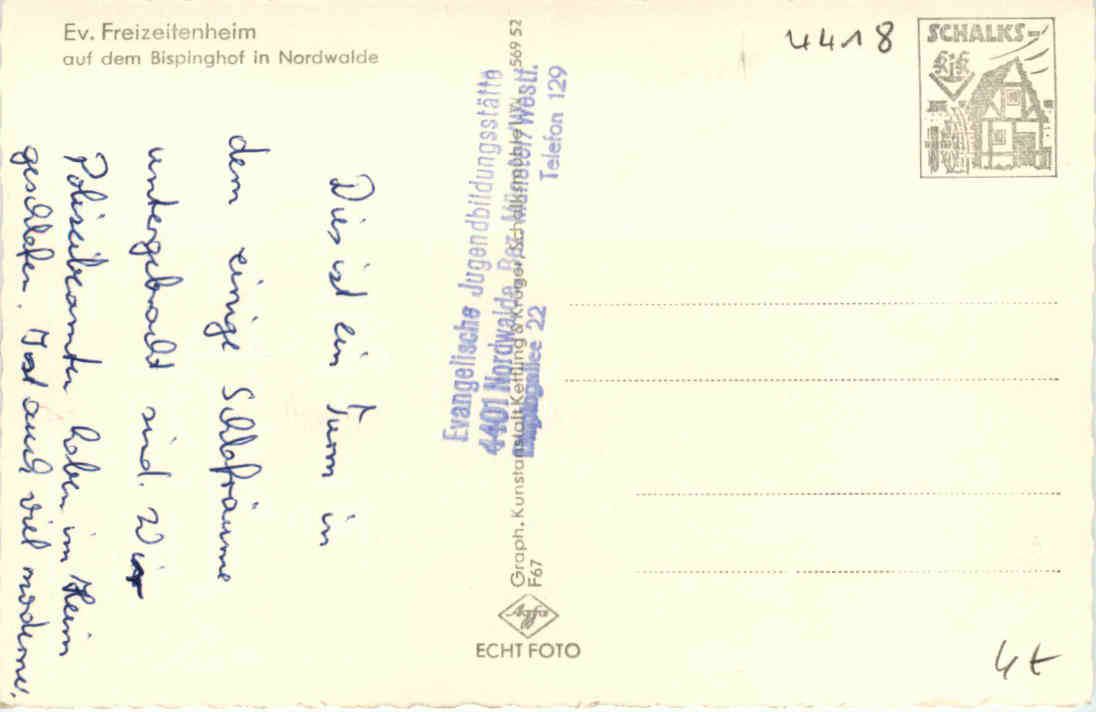 Ev. Freizeitenheim
auf dem Bispinghof in Nordwalde
4418
SCHALKS-
KiK
Dies ist ein Turm in
dem einige Schlafräume
untergebracht sind. Wir
Polizeibeamten haben im Heim
geschlafen. Ist auch viel moderner.
Evangelische Jugendbildungsstätte
4401 Nordwalde, Bez. Münster/Westf.
22
Telefon 129
Graph. Kunstanstalt Kettling & Krüger, Schalksmühle
569 52
F67
Agfa
ECHT FOTO
4t